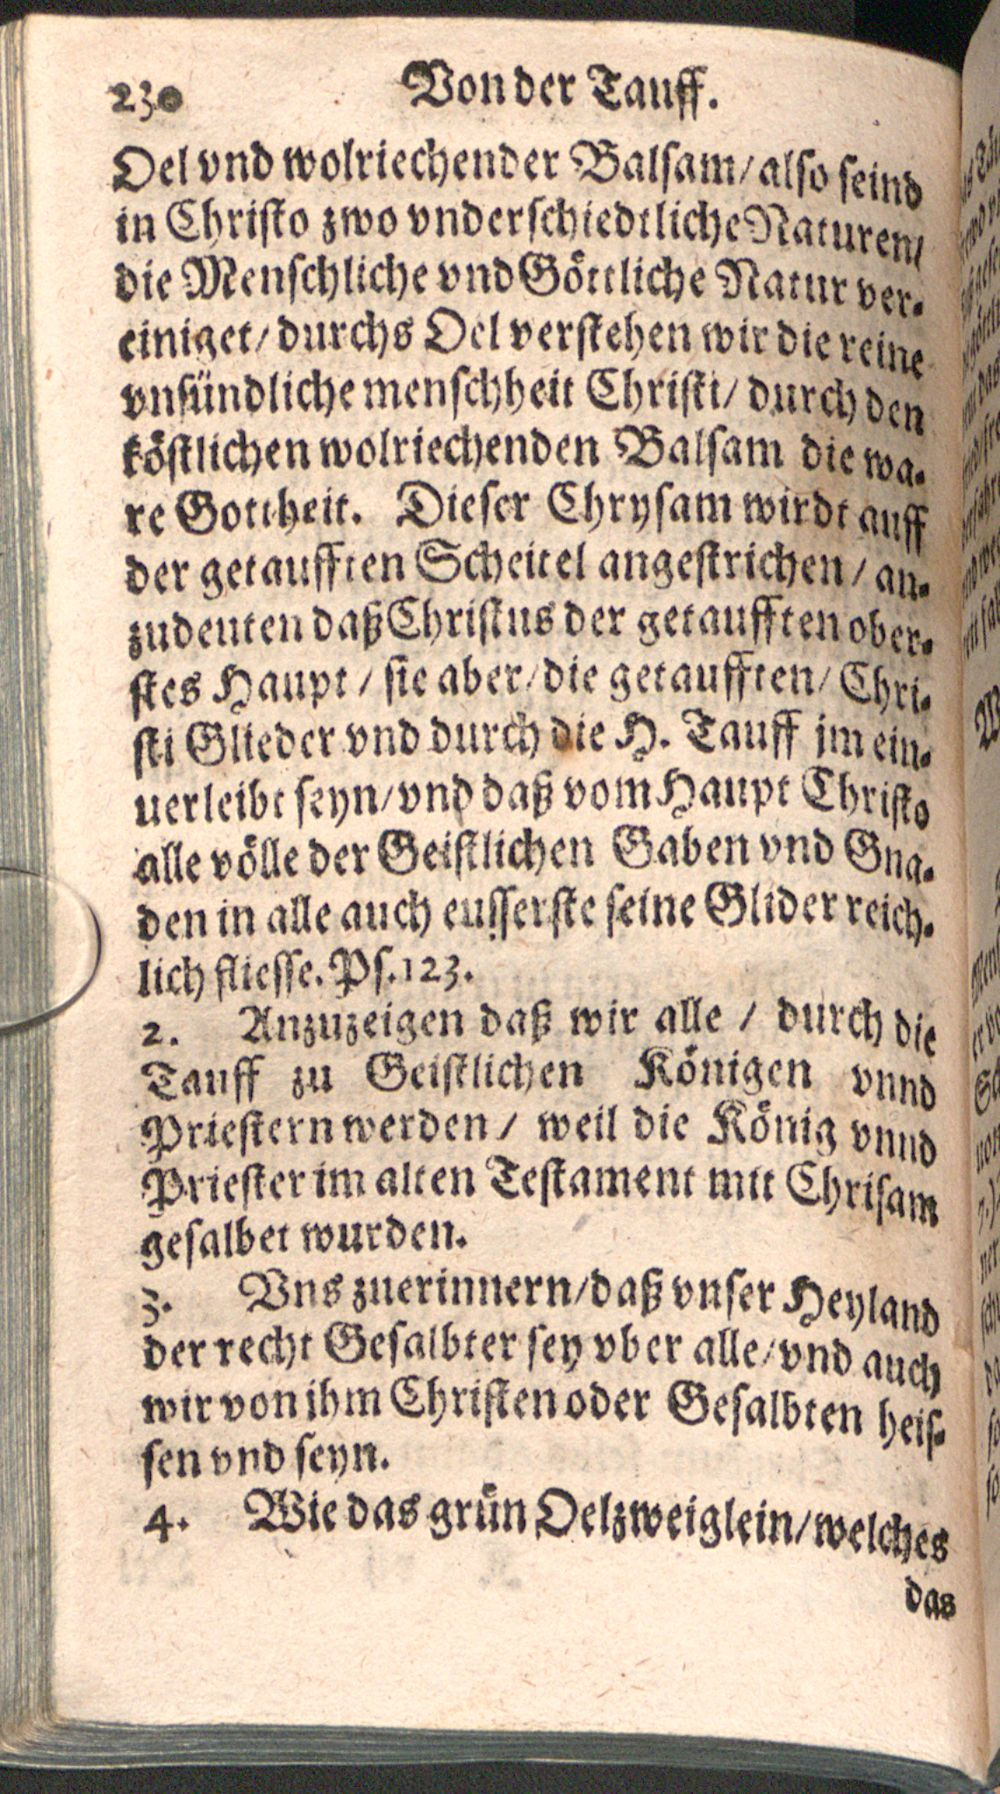 230 Von der Tauff.
Oel vnd wolriechender Balsam/ also seind
in Christo zwo vnderschiedtliche Naturen/
die Menschliche vnd Göttliche Natur ver-
einiget/ durchs Oel verstehen wir die reine
vnsündliche menschheit Christi/ durch den
köstlichen wolriechenden Balsam die wa-
re Gottheit. Dieser Chrysam wirdt auff
der getaufften Scheitel angestrichen/ an-
zudeuten daß Christus der getaufften ober-
stes Haupt/ sie aber/ die getaufften/ Chri-
sti Glieder vnd durch die H. Tauff jm ein-
uerleibt seyn/ vnd daß vom Haupt Christo
alle völle der Geistlichen Gaben vnd Gna-
den in alle auch eusserste seine Glider reich-
lich fliesse. Ps. 123.
2. Anzuzeigen daß wir alle / durch die
Tauff zu Geistlichen Königen vnnd
Priestern werden/ weil die König vnnd
Priester im alten Testament mit Chrisam
gesalbet wurden.
3. Vns zuerinnern/ daß vnser Heyland
der recht Gesalbter sey vber alle/ vnd auch
wir von ihm Christen oder Gesalbten heis-
sen vnd seyn.
4. Wie das grün Oelzweiglein/ welches
das